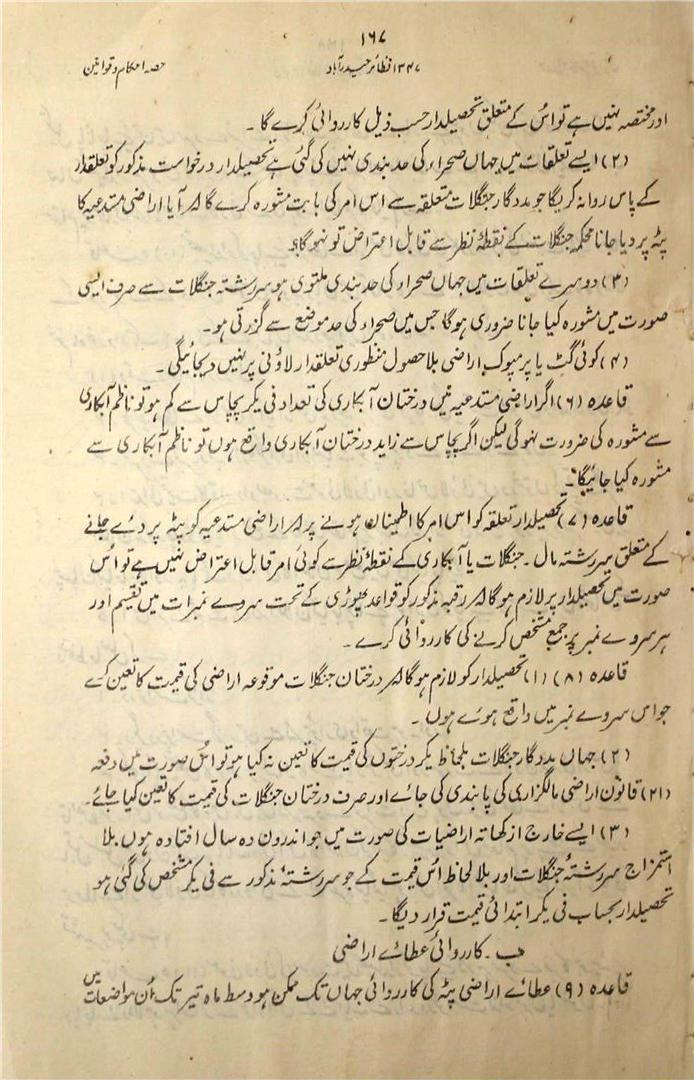 ۱۶۷
۱۳۴۷ نظائر حیدرآباد حصہ احکام و قوانین
اور مختصہ نہیں ہے تو اس کے متعلق تحصیلدار حسب ذیل کارروائی کرے گا ۔
(۲) ایسے تعلقات میں جہاں صحراء کی حد بندی نہیں کی گئی ہے تحصیلدار درخواست مذکور کو تعلقدار
کے پاس روانہ کریگا جو مددگار جنگلات متعلقہ سے اس امر کی بابت مشورہ کرے گا کہ آیا اراضی متدعیہ کا
پٹہ پر دیا جانا محکمہ جنگلات کے نقطۂ نظر سے قابل اعتراض تو نہوگا؟
(۳) دوسرے تعلقات میں جہاں صحراء کی حد بندی ملتوی ہو سررشتہ جنگلات سے صرف ایسی
صورت میں مشورہ کیا جانا ضروری ہوگا جس میں صحراء کی حد موضع سے گزرتی ہو۔
(۴) کوئی گٹ یا پرمپوک اراضی بلا حصول منظوری تعلقدار لاؤنی پر نہیں دیجائیگی ۔
قاعدہ (۶) اگر اراضی متدعیہ میں درختان آبکاری کی تعداد فی یکر پچاس سے کم ہو تو ناظم آبکاری
سے مشورہ کی ضرورت نہوگی لیکن اگر پچاس سے زاید درختان آبکاری واقع ہوں تو ناظم آبکاری سے
مشورہ کیا جائیگا۔
قاعدہ (۷) تحصیلدار تعلقہ کو اس امر کا اطمینان ہونے پر کہ اراضی متدعیہ کو پٹہ پر دئے جانے
کے متعلق سررشتہ مال ۔ جنگلات یا آبکاری کے نقطۂ نظر سے کوئی امر قابل اعتراض نہیں ہے تو اس
صورت میں تحصیلدار پر لازم ہوگا کہ رقبہ مذکور کو قواعد پھوڑی کے تحت سروے نمبرات میں تقسیم اور
ہر سروے نمبر پر جمع مشخص کرنے کی کارروائی کرے ۔
قاعدہ (۸) (۱) تحصیلدار کو لازم ہوگا کہ درختان جنگلات موقوعہ اراضی کی قیمت کا تعین کرے
جو اس سروے نمبر میں واقع ہوئے ہوں ۔
(۲) جہاں مددگار جنگلات بلحاظ یکر درختوں کی قیمت کا تعین نہ کیا ہو تو اس صورت میں دفعہ
(۲۱) قانون اراضی مالگزاری کی پابندی کی جائے اور صرف درختان جنگلات کی قیمت کا تعین کیا جائے۔
(۳) ایسے خارج از کھاتہ اراضیات کی صورت میں جو اندرون دہ سال افتادہ ہوں بلا
استمزاج سررشتۂ جنگلات اور بلا لحاظ اس قیمت کے جو سررشتۂ مذکور سے فی یکر مشخص کی گئی ہو
تحصیلدار بحساب فی یکر ابتدائی قیمت قرار دیگا ۔
ب ۔ کارروائی عطائے اراضی
قاعدہ (۹) عطائے اراضی پٹہ کی کارروائی جہاں تک ممکن ہو وسط ماہ تیر تک اُن مواضعات میں